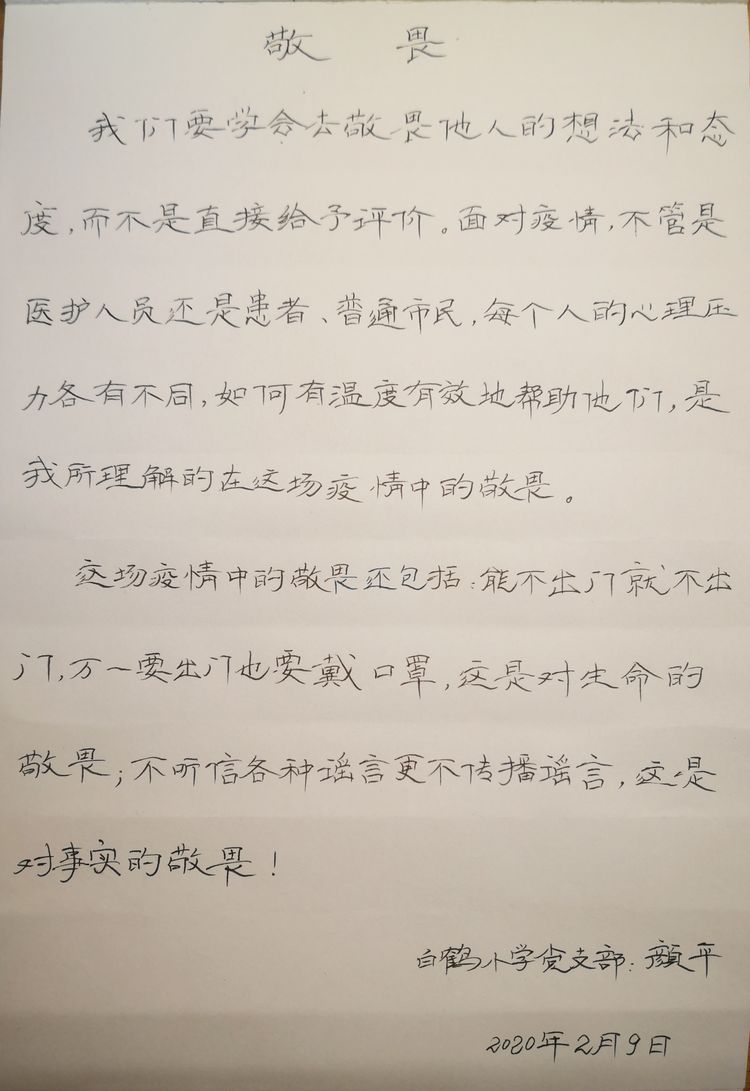 敬畏
我们要学会去敬畏他人的想法和态
度,而不是直接给予评价。面对疫情,不管是
医护人员还是患者、普通市民,每个人的心理压
力各有不同,如何有温度有效地帮助他们,是
我所理解的在这场疫情中的敬畏。
这场疫情中的敬畏还包括:能不出门就不出
门,万一要出门也要戴口罩,这是对生命的
敬畏;不听信各种谣言更不传播谣言,这是
对事实的敬畏!
白鹤小学党支部:颜平
2020年2月9日